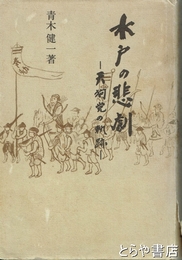 水戸の悲劇
－天狗党の軌跡－
青木健一著
とらや書店